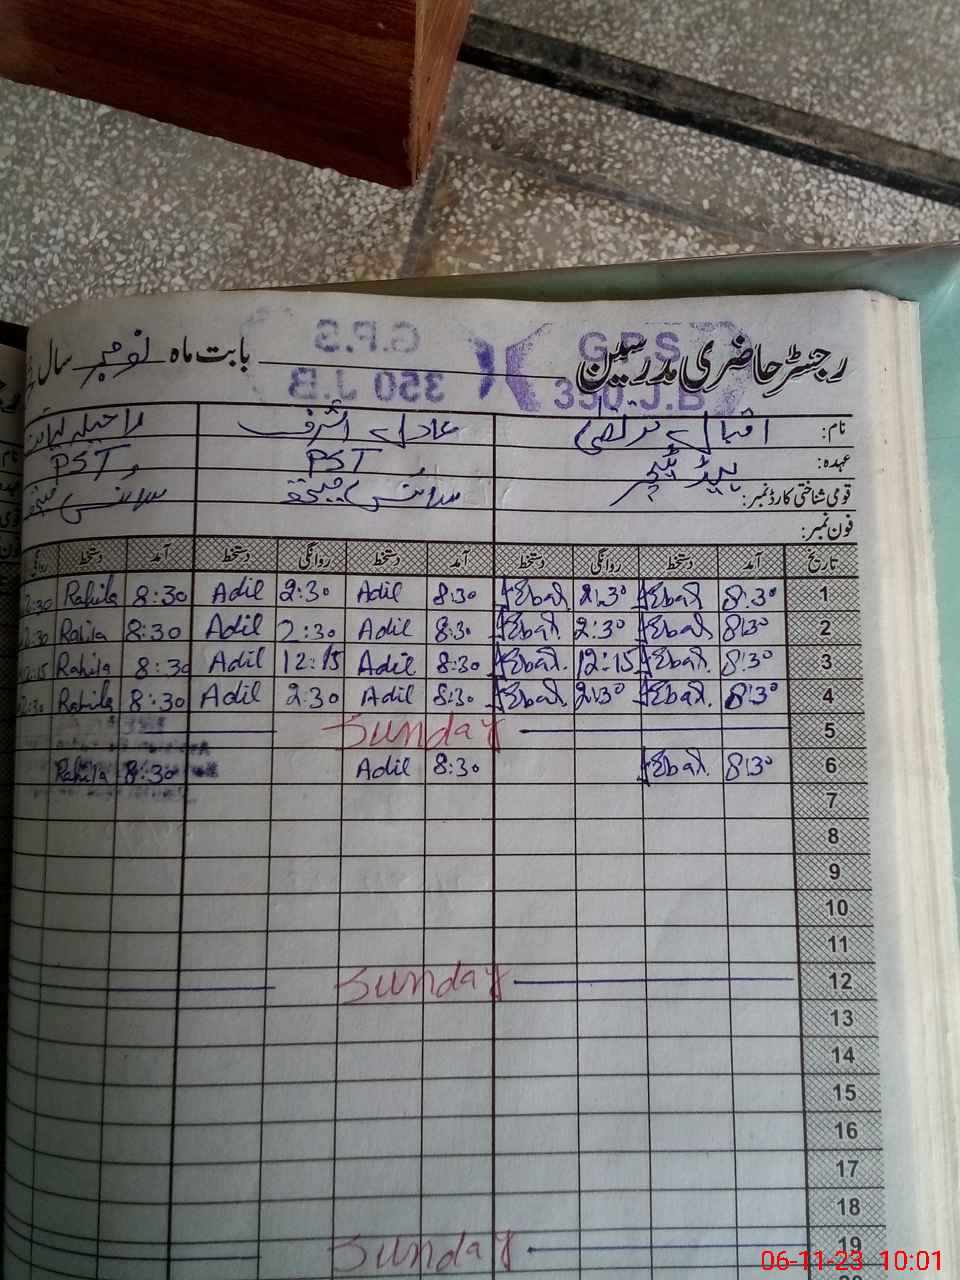 G.P.S
350 J.B
رجسٹر حاضری مدرسین بابت ماہ نومبر سال
نام: اقبال مرتضی عادل اشرف راحیلہ
عہدہ: ہیڈ ٹیچر PST PST
قومی شناختی کارڈ نمبر: سائنس میتھ سائنس میتھ
فون نمبر:
تاریخ آمد دستخط روانگی دستخط آمد دستخط روانگی دستخط آمد دستخط روانگی
1 8:30 Iqbal 2:30 Iqbal 8:30 Adil 2:30 Adil 8:30 Rahila 2:30
2 8:30 Iqbal. 2:30 Iqbal. 8:30 Adil 2:30 Adil 8:30 Rahila 2:30
3 8:30 Iqbal. 12:15 Iqbal. 8:30 Adil 12:15 Adil 8:30 Rahila 12:15
4 8:30 Iqbal. 2:30 Iqbal. 8:30 Adil 2:30 Adil 8:30 Rahila 2:30
5 Sunday
6 8:30 Iqbal. 8:30 Adil 8:30 Rahila
7
8
9
10
11
12 Sunday
13
14
15
16
17
18
19 Sunday
06-11-23 10:01